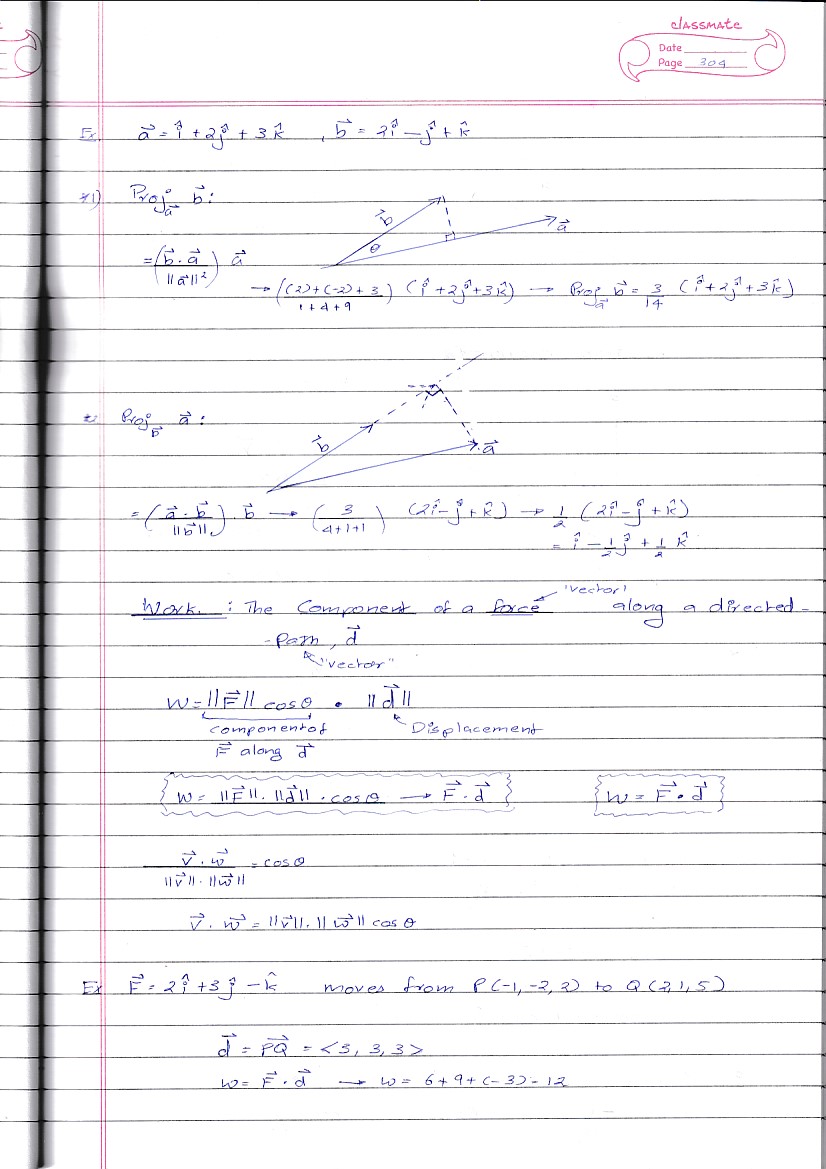 classmate
Date
Page 304
Ex. a⃗ = î + 2ĵ + 3k̂ , b⃗ = 2î - ĵ + k̂
1) Proj_a⃗ b⃗ :
b⃗
θ
a⃗
= (b⃗ · a⃗ / ||a⃗||²) a⃗
→ ((2)+(-2)+3 / 1+4+9) (î + 2ĵ + 3k̂) → Proj_a⃗ b⃗ = 3/14 (î + 2ĵ + 3k̂)
Proj_b⃗ a⃗ :
b⃗
a⃗
= (a⃗ · b⃗ / ||b⃗||) · b⃗ → (3 / 4+1+1) (2î - ĵ + k̂) → 1/2 (2î - ĵ + k̂)
= î - 1/2 ĵ + 1/2 k̂
'vector'
Work. : The Component of a force along a directed-
-path, d⃗
"vector"
W = ||F⃗|| cosθ • ||d⃗||
component of
Displacement
F⃗ along d⃗
W = ||F⃗|| · ||d⃗|| · cosθ → F⃗ · d⃗
W = F⃗ • d⃗
v⃗ · w⃗ / ||v⃗|| · ||w⃗|| = cosθ
v⃗ · w⃗ = ||v⃗|| · ||w⃗|| cosθ
Ex F⃗ = 2î + 3ĵ - k̂ moves from P(-1, -2, 2) to Q(2, 1, 5)
d⃗ = PQ⃗ = <3, 3, 3>
W = F⃗ · d⃗ → W = 6 + 9 + (-3) = 12